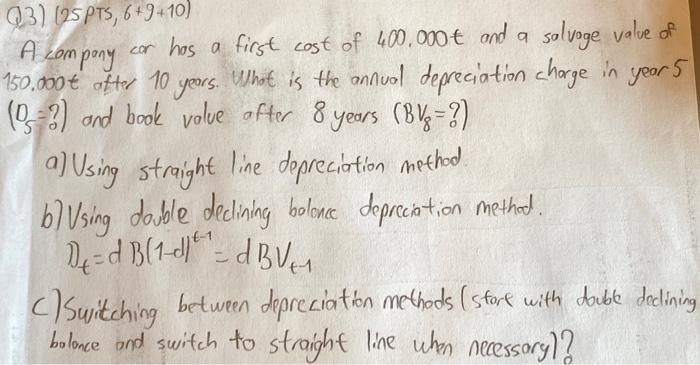 Q3) (25 PTS, 6+9+10)
A company car has a first cost of 400.000₺ and a salvage value of
150.000₺ after 10 years. What is the annual depreciation charge in year 5
(D₅=?) and book value after 8 years (BV₈=?)
a) Using straight line depreciation method.
b) Using double declining balance depreciation method.
Dₜ = d B(1-d)ᵗ⁻¹ = d BVₜ₋₁
c) Switching between depreciation methods (start with double declining
balance and switch to straight line when necessary)?